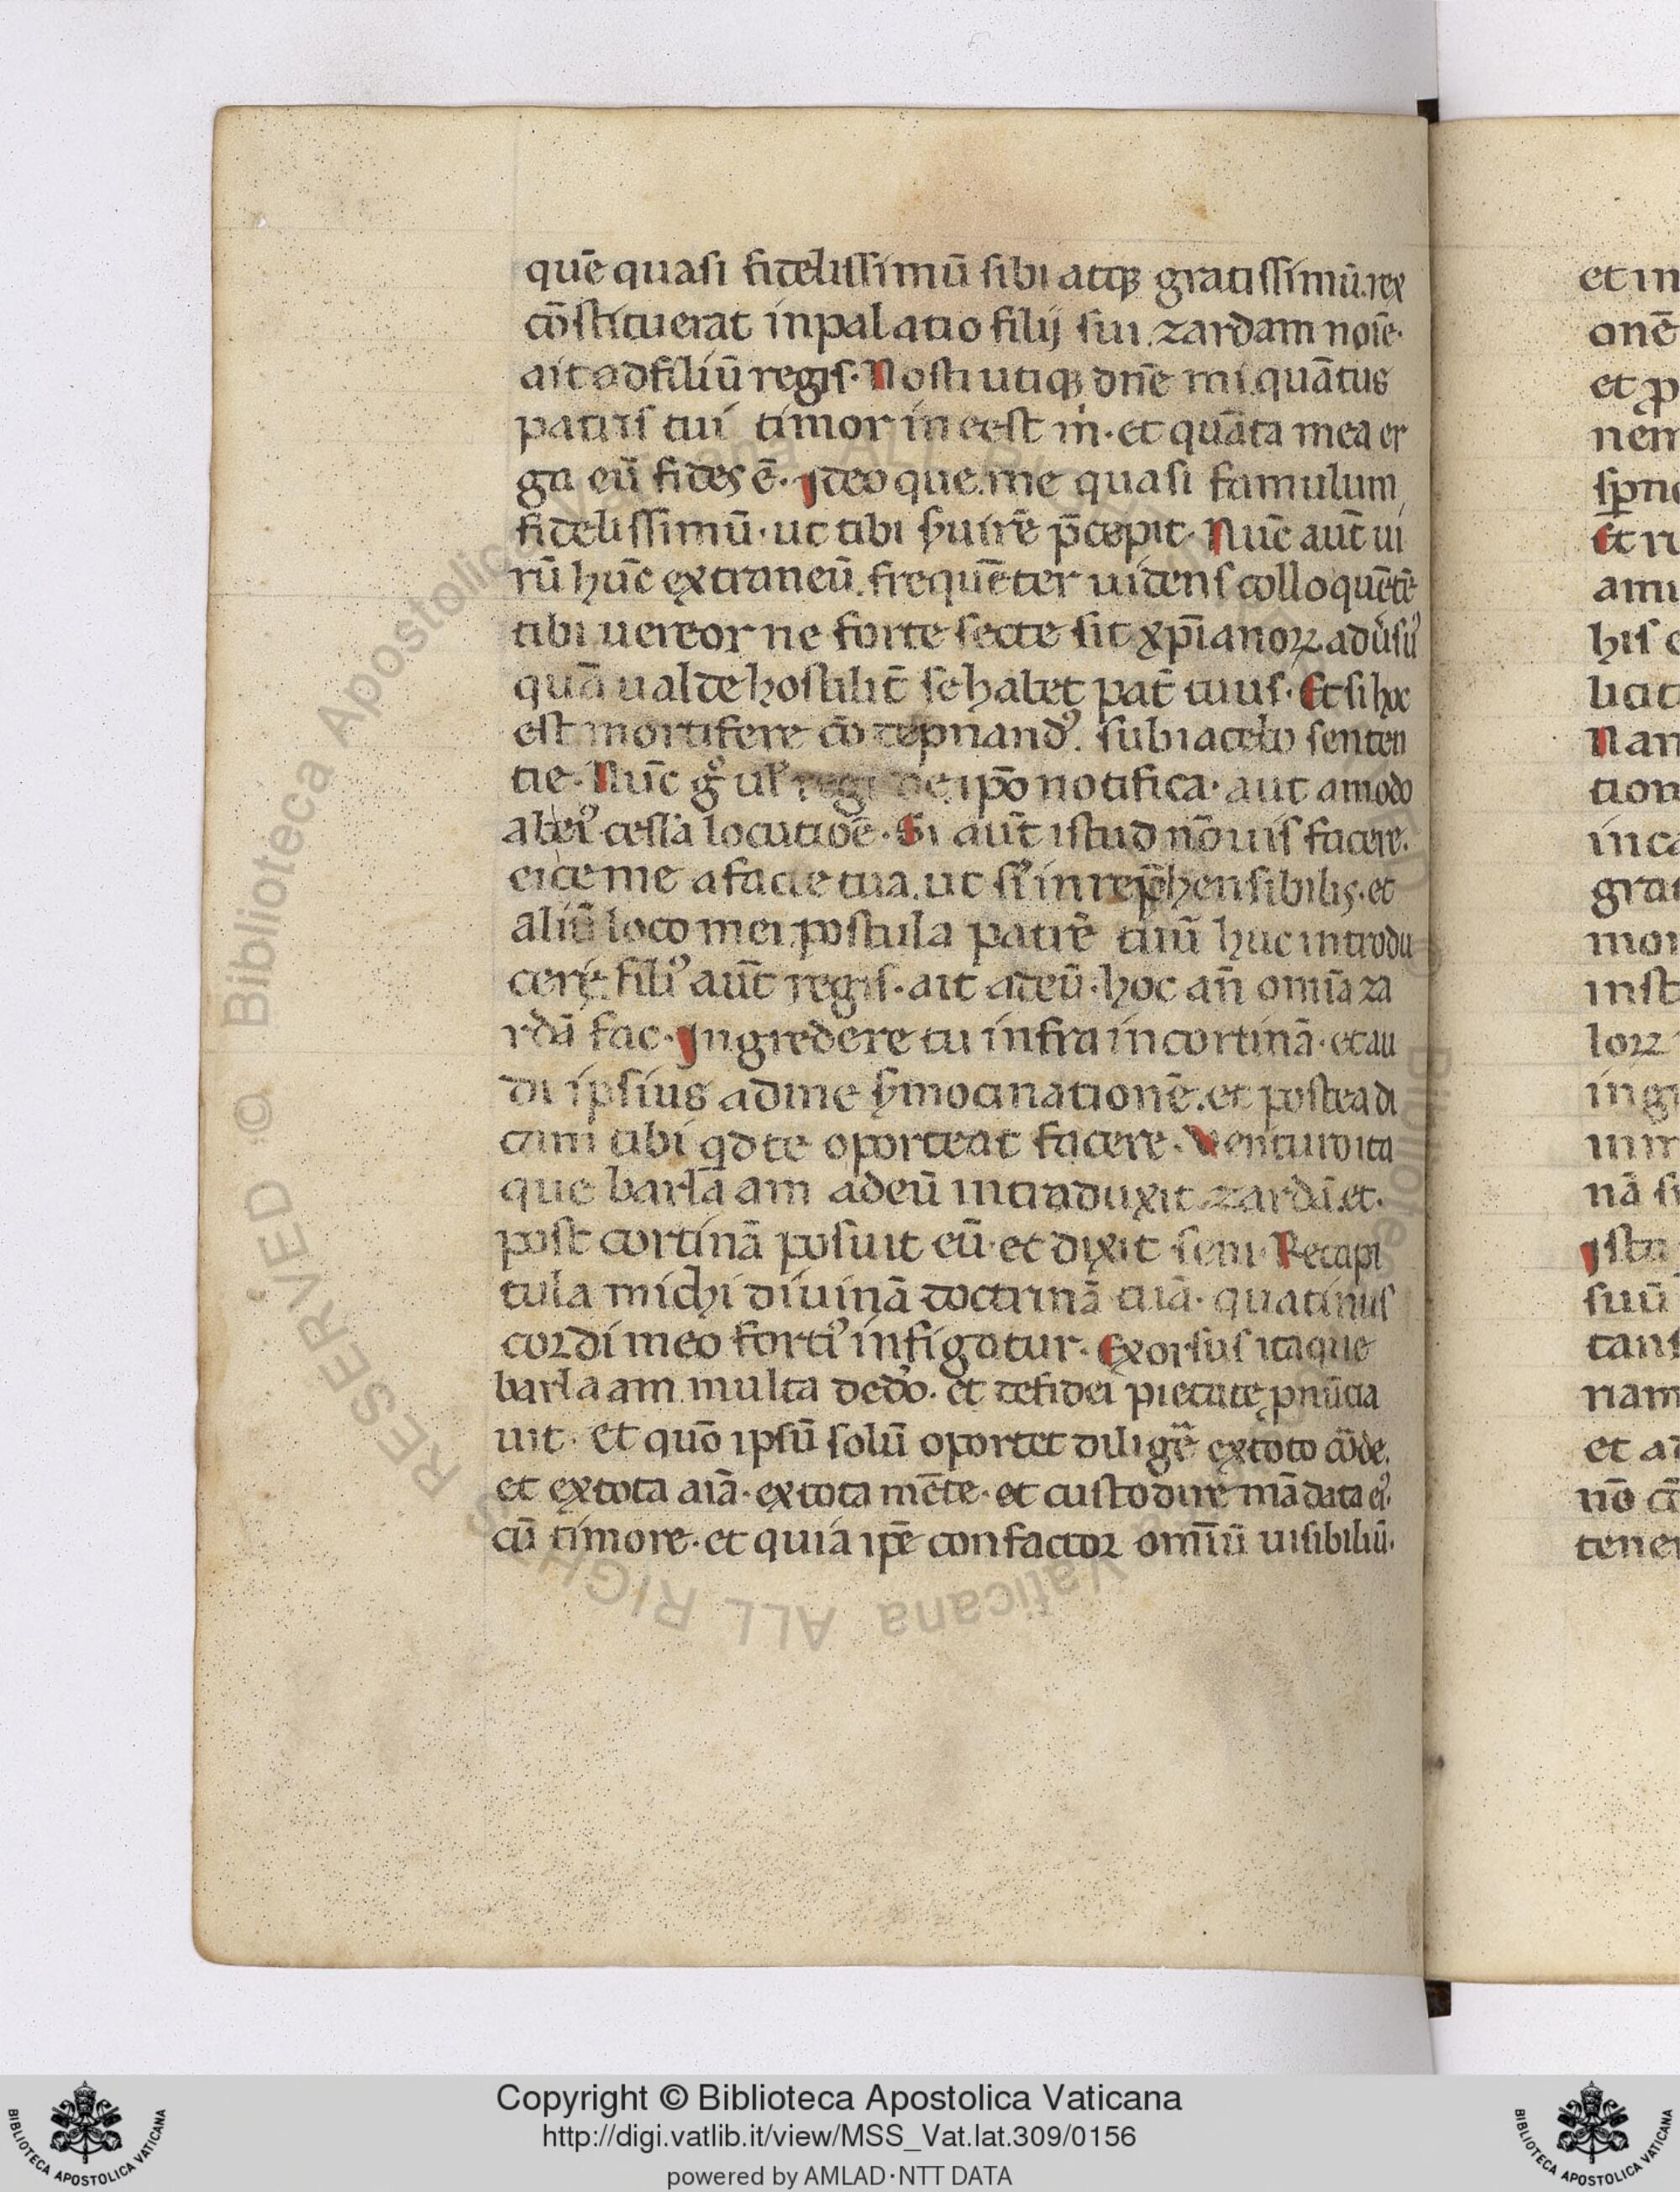 quē quasi fidelissimū sibi atqꝫ gratissimū. rex
cōstituerat in palatio filij sui. zardam noīe·
ait ad filiū regis· Nosti utiqꝫ dn̄e mi quātus
patris tui timor in eest m̍· et quāta mea er
ga eū fides ē· Ideoque. me quasi famulum
fidelissimū· ut tibi ẜuirē p̄cepit· Nūc aut̄ ui
rū hūc extraneū. frequēter uidens colloquētē
tibi uereor ne forte secte sit xp̄ianoꝝ aduͥsuꝰ
quā ualde hostilit̄ se habet pat̄ tuus· Et si hoc
est mortifere cōtēpnandꝰ. subiacebo senten
tie· Nūc gͦ ul̕ regi de ip̄o notifica· aut amodo
ab eiꝰ cessa locutiōe· Si aut̄ istud nō uis facere.
eice me a facie tua. ut si̅ inrep̄hensibilis· et
aliū loco mei postula patrē tuū huc introdu
cere. filiꝰ aut̄ regis· ait ad eū· hoc an̄ omīa za
rdā fac· Ingredere tu infra in cortinā· et au
di ipsius ad me ẜmocinationē. et postea di
cam tibi qd te oporteat facere· Venturo ita
que barlaam ad eū introduxit zardā. et·
post cortinā posuit eū· et dixit seni· Recapi
tula michi diuinā doctrinā tuā· quatinus
cordi meo fortiꝰ infigatur· Exorsus itaque
barlaam multa de do̅· et de fidei pietate p̱nūcia
uit· et quō ipsū solū oportet diligē ex toto cōde.
et ex tota aīa· ex tota mēte· et custodire mādata eiꝰ·
cū timore· et quia ip̄e con factor omīū uisibiliū·
et in
onē
et ꝓ
nem
sp̱ne
Et n
ami
his e
licit
Nam
tion
inca
grat
mor
inst
loꝝ
ingr
nā si
Ista
suū
tans
nam
et ad
nō
tener
© Biblioteca Apostolica Vaticana ALL RIGHTS RESERVED
BIBLIOTECA APOSTOLICA VATICANA
Copyright © Biblioteca Apostolica Vaticana
http://digi.vatlib.it/view/MSS_Vat.lat.309/0156
powered by AMLAD·NTT DATA
BIBLIOTECA APOSTOLICA VATICANA